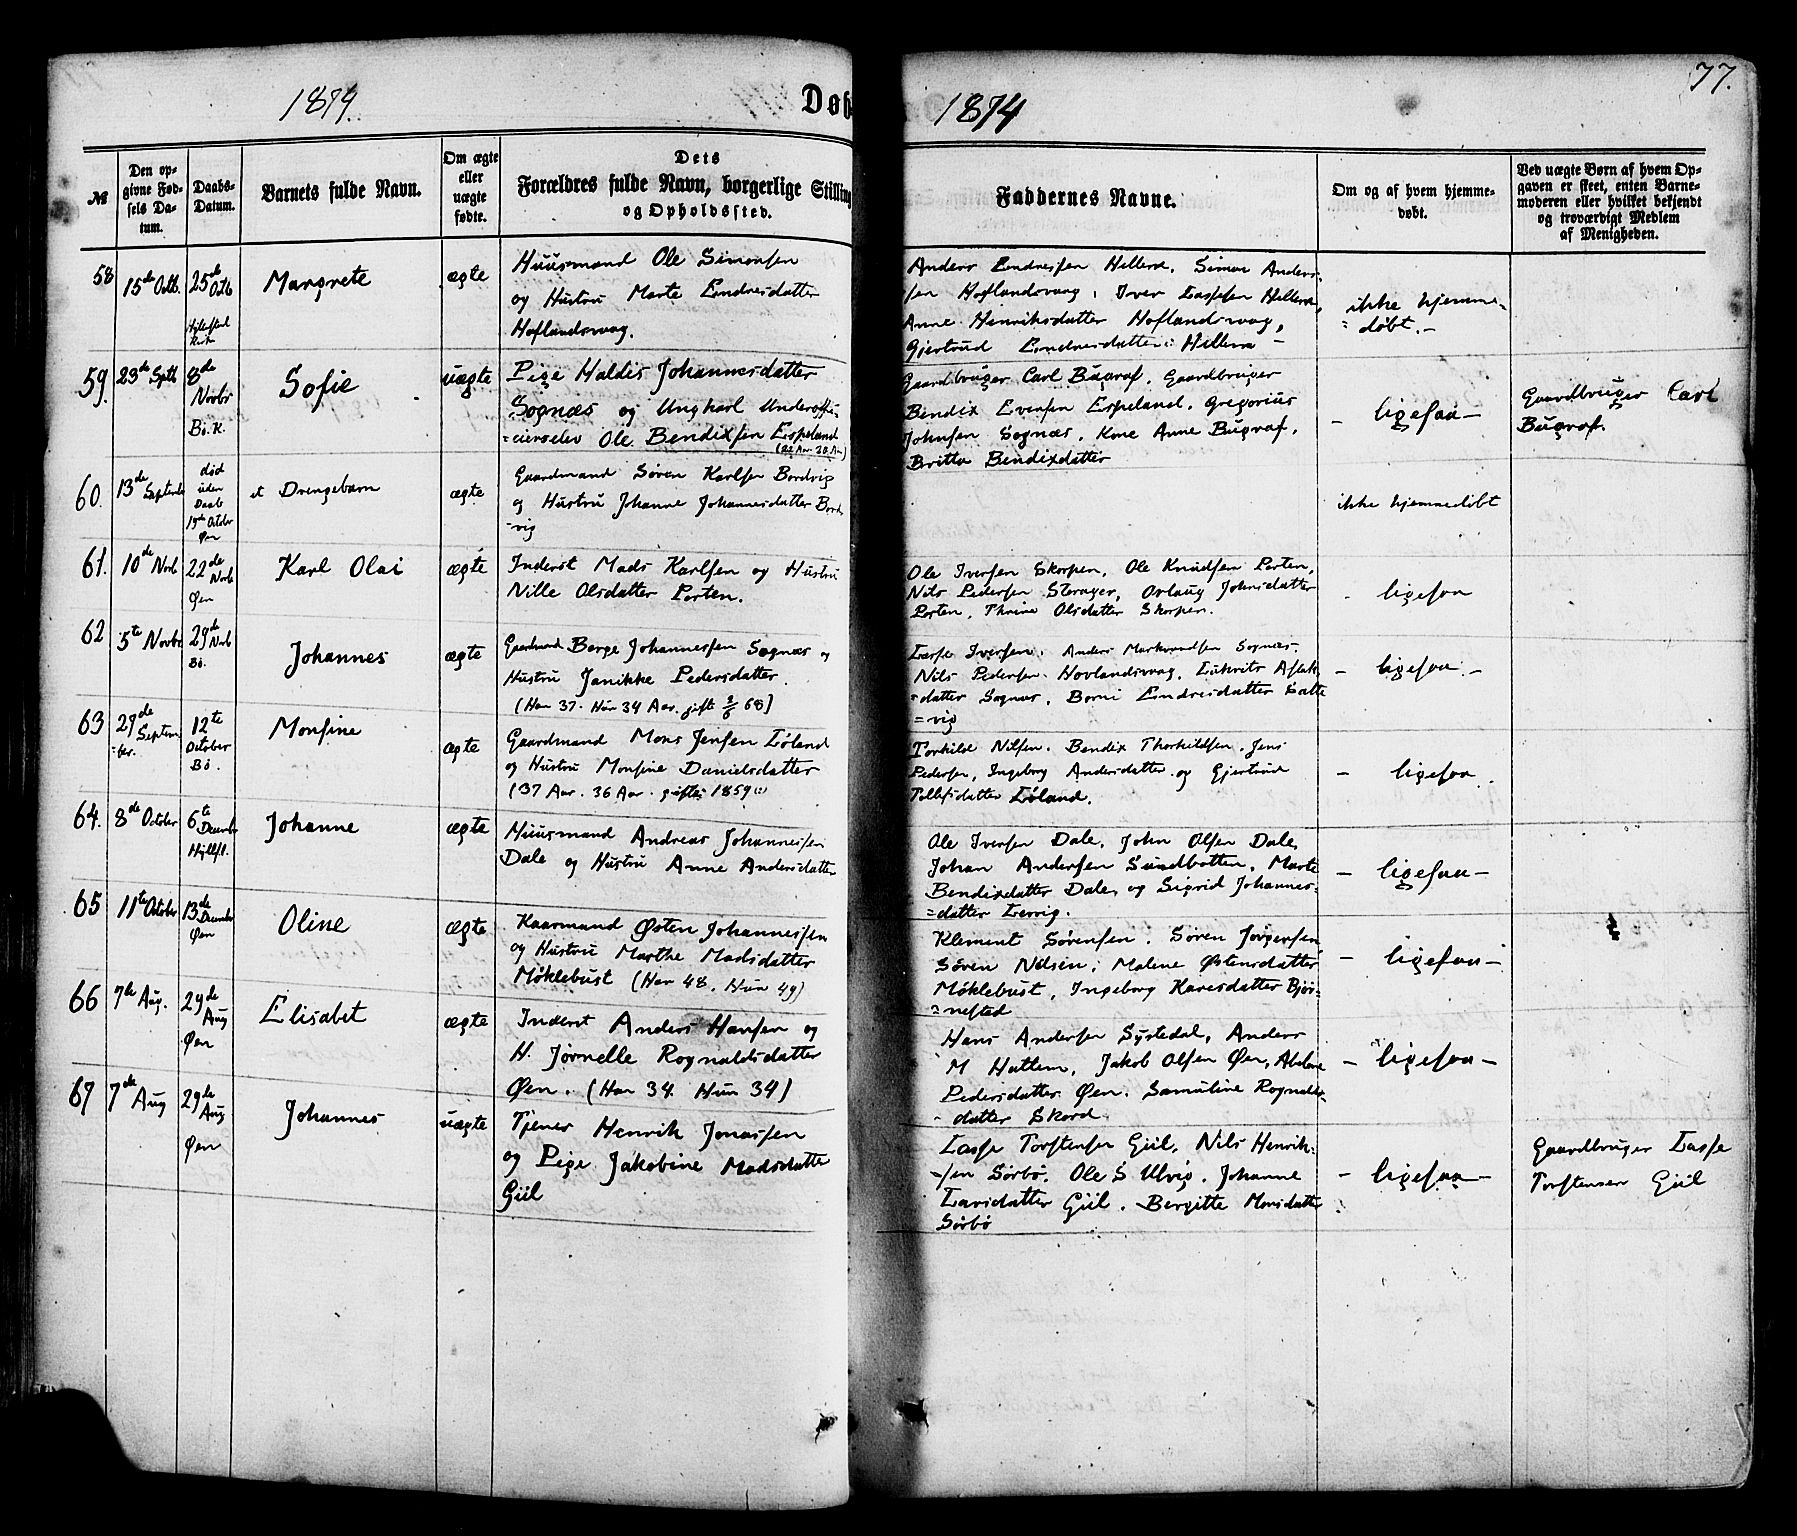 1874.
Døb
1874
77.
№
Den op-
givne Fød-
sels Da-
tum.
Daabs-
Datum.
Barnets fulde Navn.
Om ægte
eller
uægte
fødte.
Dets
Forældres fulde Navn, borgerlige Stilling
og Opholdssted.
Faddernes Navne.
Om og af hvem hjemme-
døbt.
Ved uægte Børn af hvem Op-
gaven er skeet, enten Barne-
moderen eller hvilket bekjendt
og troværdigt Medlem
af Menigheden.
58
15de Octb.
25de
Octb
Margrete
ægte
Huusmand Ole Simonsen
og Hustru Marte Endresdatter
Hoflandsvag.
Anders Endresen Hellera, Simon Anders-
sen Hoflandsvaag, Iver Lassesen Hellera,
Anne Henriksdatter Hoflandsvag,
Gjertrud Endresdatter Hellera -
ikke hjemme-
=døbt. -
59.
23de Sptb
8de
Novbr
Bö. K.
Sofie
uægte
Pige Haldis Johannesdatter
Sognæs og Ungkarl Underoffi-
=cierselev Ole Bendixsen Espeland
(22 Aar 20 Aar)
Gaardbruger Carl Bugraf, Gaardbruger
Bendix Eversen Espeland, Gregorius
Johnsen Sognæs, Kone Anne Bugraf,
Britta Bendixdatter
- ligesaa -
Gaardbruger Carl
Bugraf.
60.
13de Septembr
død
uden
Daab
15de Octbr
Øen
et Drengebarn
ægte
Gaardmand Søren Karlsen Bordvig
og Hustru Johanne Johannesdatter Bord
-vig
ikke hjemmedöbt
61.
10de Novb
22de
Novb
Øen
Karl Olai
ægte
Inderst Mads Karlsen og Hustru
Nille Olsdatter Porten.
Ole Iversen Skorpen, Ole Knudsen Porten,
Nils Pedersen Storager, Ovlaug Johnsdatter
Porten, Thrine Olsdatter Skorpen.
- ligesaa
62
5te Novbr
29de
Novb
Bö.
Johannes
ægte
Gaardmand Børge Johannessen Sognæs og
Hustru Janikke Pedersdatter.
(Han 37. Hun 34 Aar. gift 2/6 68)
Lasse Iversen, Anders Markvardsen Sognæs,
Nils Pedersen Hovlandsvaag, Lukrits Aslak-
=datter Sognæs, Borni Endresdatter Salte
=vig
- ligesaa. -
63
29de
Septem
=ber.
12te
October
Bö.
Monsine
ægte
Gaardmand Mons Jensen Löland
og Hustru Monsine Danielsdatter
(37 Aar. 36 Aar. gifte 1859)
Torkild Nilsen. Bendix Thorkildsen, Jens
Pedersen, Ingeborg Andersdatter og Gjertrud
Tollefsdatter Löland.
- ligesaa.
64.
8de October
6te
Decembr
Hyllest.
Johanne
ægte
Huusmand Andreas Johannessen
Dale og Hustru Anne Andersdatter
Ole Iversen Dale, John Olsen Dale,
Johan Andersen Sundbotten, Marte
Bendixdatter Dale, og Sigrid Johannes-
=datter Lervig.
- ligesaa -
65
11te October
13de
Decembr
Øen
Oline
ægte
Kaarmand Østen Johannessen
og Hustru Marthe Madsdatter
Møklebust (Han 48. Hun 49)
Klement Sørensen, Søren Jørgensen
Søren Nilsen, Malene Østensdatter
Møklebust, Ingeborg Karesdatter Bjør-
=nestad
- ligesaa -
66
7de Aug.
29de
Aug
Øen
Elisabet
ægte
Inderst Anders Hansen og
H. Jørnelle Rognaldsdatter
Øen. (Han 34. Hun 34)
Hans Andersen Systedal, Anders
M Hattem, Jakob Olsen Øen, Abelone
Pedersdatter Øen. Samuline Rognalds-
datter Skord
- ligesaa -
67
7de Aug
29de
Aug
Øen
Johannes
uægte
Tjener Henrik Jonassen
og Pige Jakobine Madsdatter
Giil
Lasse Torstensen Giil, Nils Henrik-
-sen Sörbö. Ole S. Ulvig, Johanne
Larsdatter Giil. Bergitte Monsdatter
Sörbö
- ligesaa -
Gaardbruger Lasse
Torstensen Giil